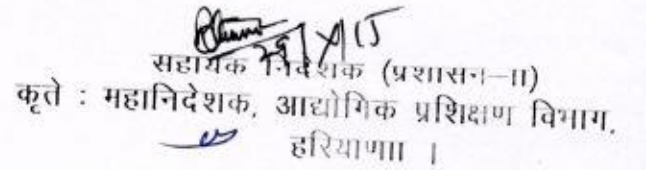 29/X/15
सहायक निदेशक (प्रशासन-II)
कृते : महानिदेशक, आद्योगिक प्रशिक्षण विभाग,
हरियाणाा ।